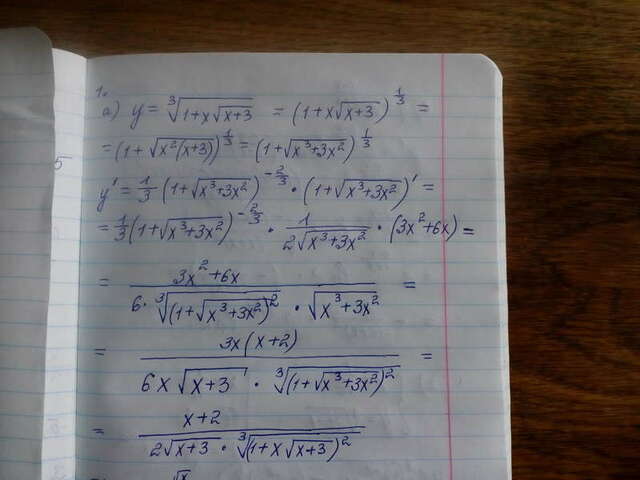 1.
a) y = ∛(1+x√(x+3)) = (1+x√(x+3))^(1/3) =
= (1+√(x²(x+3)))^(1/3) = (1+√(x³+3x²))^(1/3)
5
y' = 1/3 (1+√(x³+3x²))^(-2/3) · (1+√(x³+3x²))' =
= 1/3 (1+√(x³+3x²))^(-2/3) · 1/(2√(x³+3x²)) · (3x²+6x) =
= (3x²+6x)/(6·∛((1+√(x³+3x²))²) · √(x³+3x²)) =
= 3x(x+2)/(6x√(x+3) · ∛((1+√(x³+3x²))²)) =
= (x+2)/(2√(x+3) · ∛((1+x√(x+3))²))